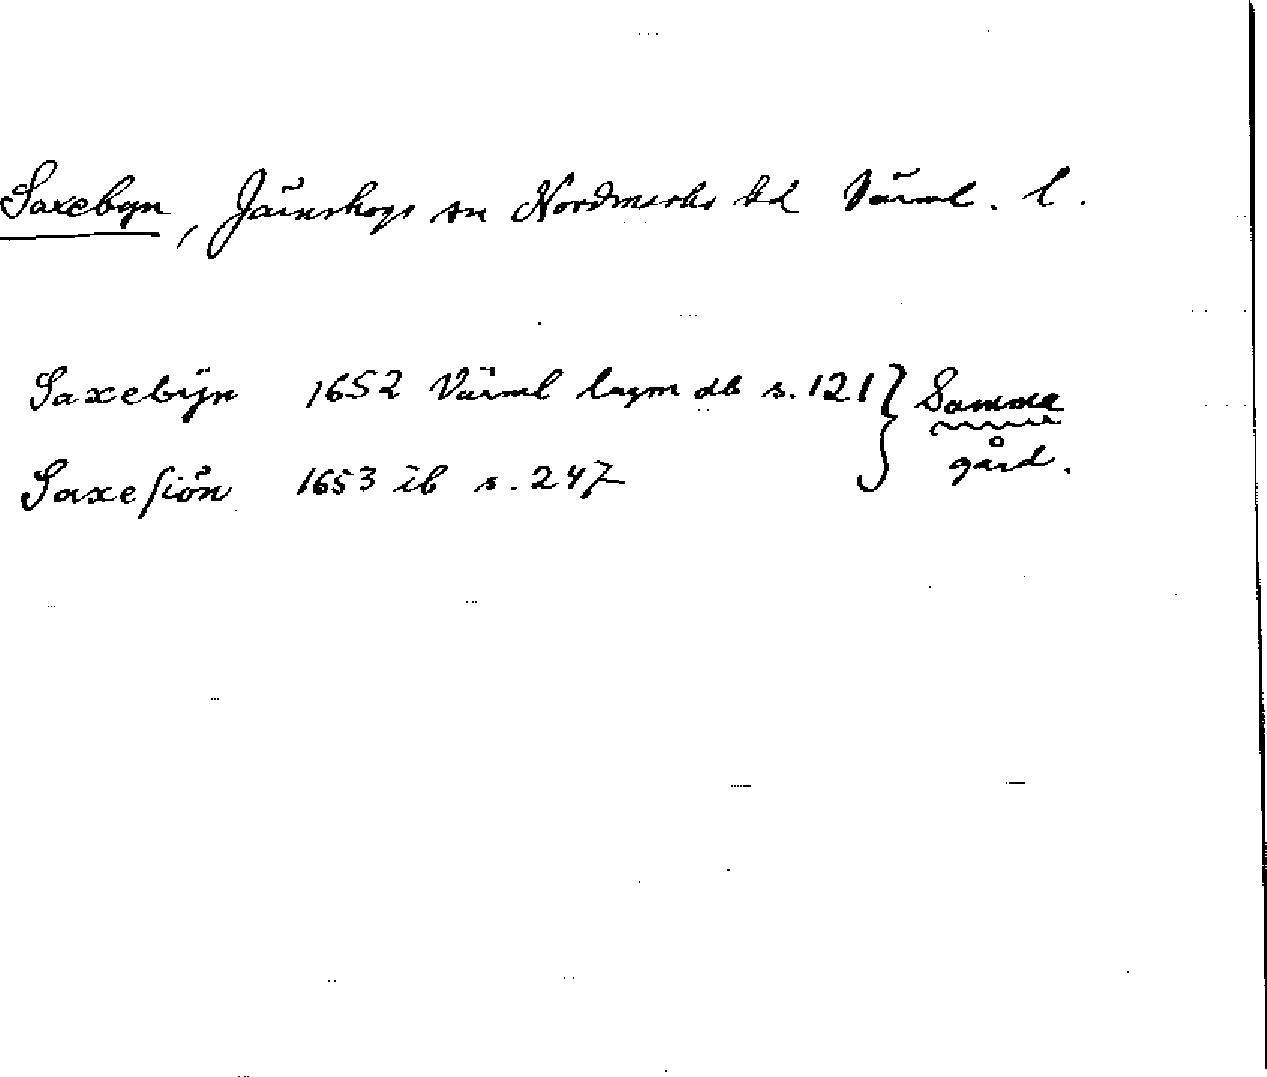 Saxebyn, Järnskogs sn Nordmarks hd Värml. l.
Saxebÿn 1652 Värml lagm db s. 121 } Samma
Saxesiön 1653 ib s. 247 } gård.